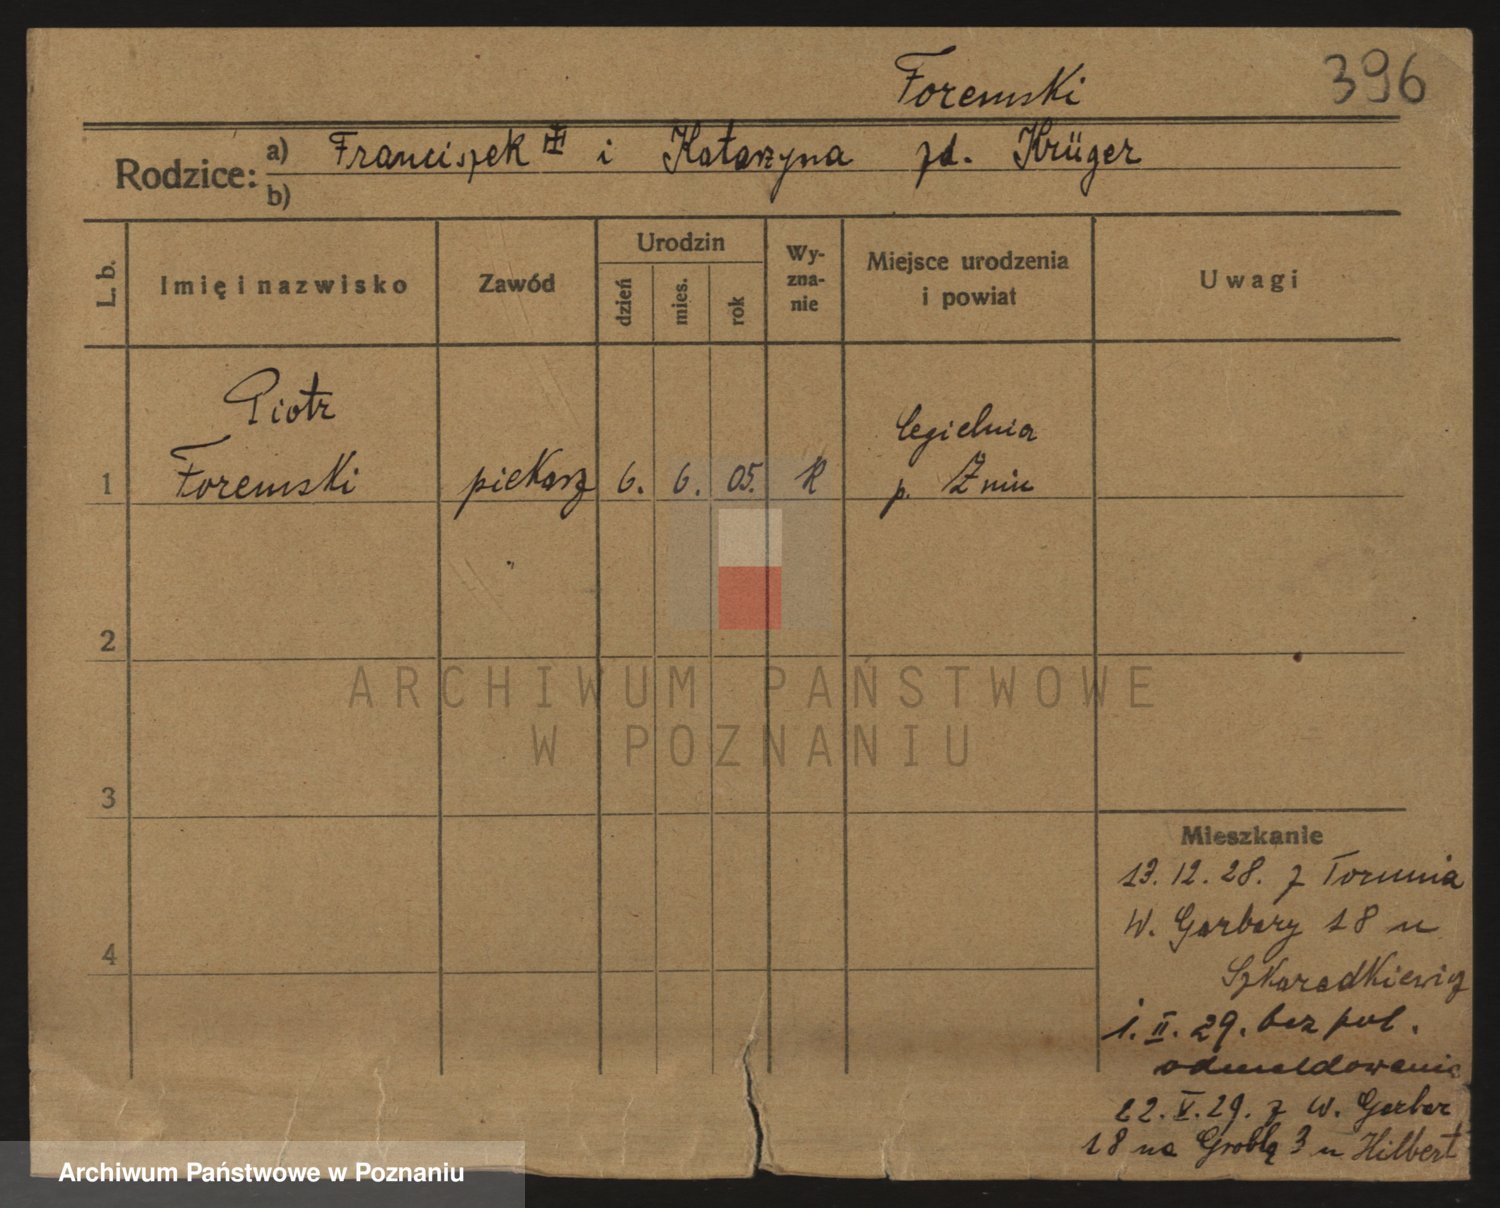 Foremski
396
Rodzice:
a) Franciszek i Katarzyna zd. Krüger
b)
L. b.
Imię i nazwisko
Zawód
Urodzin
dzień
mies.
rok
Wy-
zna-
nie
Miejsce urodzenia
i powiat
Uwagi
Piotr
Cegielnia
1 Foremski piekarz 6. 6. 05. R p. Żnin
2
ARCHIWUM PAŃSTWOWE
W POZNANIU
3
Mieszkanie
13. 12. 28. z Torunia
W. Garbary 18 u
Szkaradkiewicz
4
1. II. 29. bez pol.
odmeldowania
22. V. 29. z W. Garbar
18 na Groblą 3 u Hilbert
Archiwum Państwowe w Poznaniu